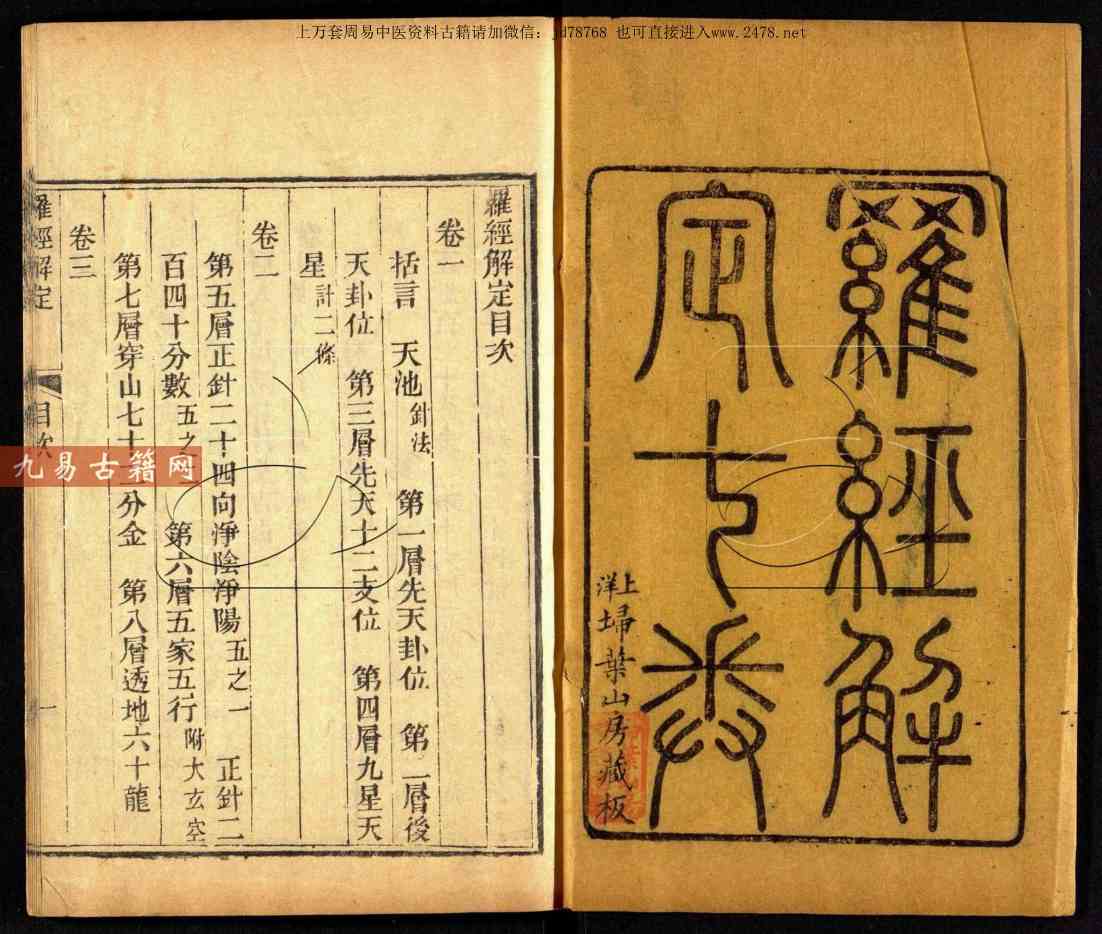 上万套周易中医资料古籍请加微信：jd78768 也可直接进入www.2478.net
羅經解
定七卷
上洋埽葉山房藏板
羅經解定目次
卷一
括言 天池針法 第一層先天卦位 第二層後
天卦位 第三層先天十二支位 第四層九星天
星計二條
卷二
第五層正針二十四向淨陰淨陽五之一 正針二
百四十分數五之 第六層五家五行附大玄空
第七層穿山七十二分金 第八層透地六十龍
卷三
羅經解定 目次 一
九易古籍网